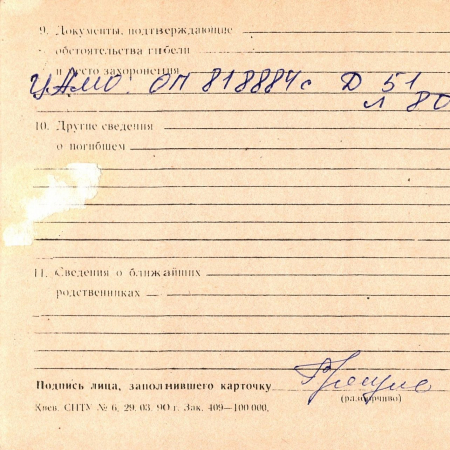 9. Документы, подтверждающие
обстоятельства гибели
и место захоронения
ЦАМО. ОП 818884с Д 51
Л 80
10. Другие сведения
о погибшем
11. Сведения о ближайших
родственниках
Подпись лица, заполнившего карточку
(разборчиво)
Киев. СНТУ № 6, 29. 03. 90 г. Зак. 409—100.000.